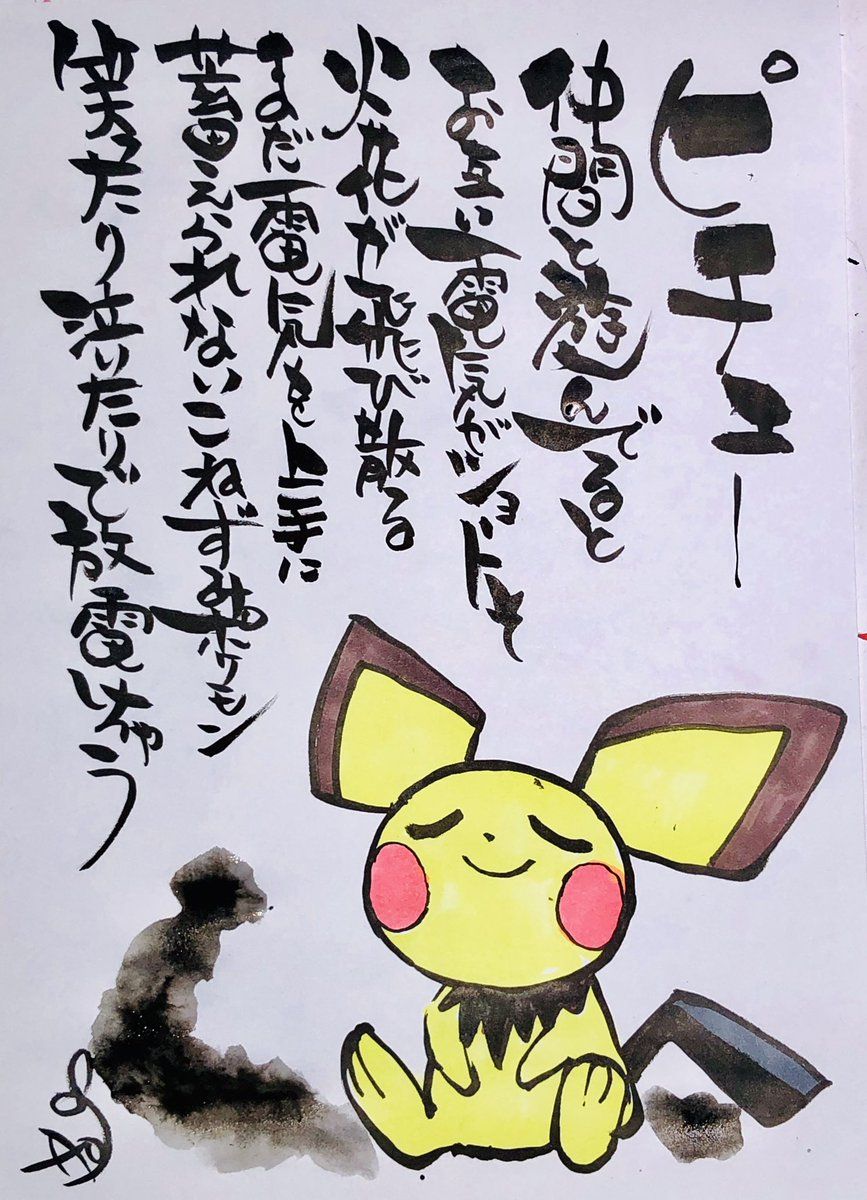 ピチュー
仲間と遊んでると
お互い電気がショートそ
火花が飛び散る
まだ電気を上手に
蓄えられないこねずみポケモン
笑ったり泣いたりで放電しちゃう